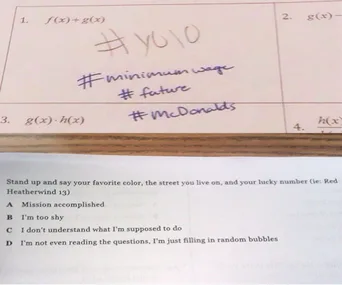 1. f(x)+g(x)
2. g(x) –
#YOLO
#minimumwage
# future
# McDonalds
3. g(x)·h(x)
4. h(x)
Stand up and say your favorite color, the street you live on, and your lucky number (ie: Red
Heatherwind 13)
A Mission accomplished
B I'm too shy
C I don't understand what I'm supposed to do
D I'm not even reading the questions, I'm just filling in random bubbles